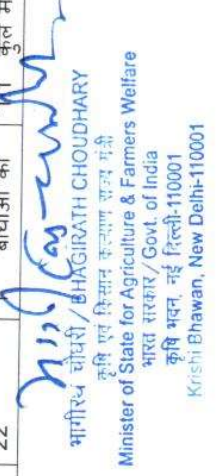 22
बाधाओं का
कुल
भागीरथ चौधरी / BHAGIRATH CHOUDHARY
कृषि एवं किसान कल्याण राज्य मंत्री
Minister of State for Agriculture & Farmers Welfare
भारत सरकार / Govt. of India
कृषि भवन, नई दिल्ली-110001
Krishi Bhawan, New Delhi-110001